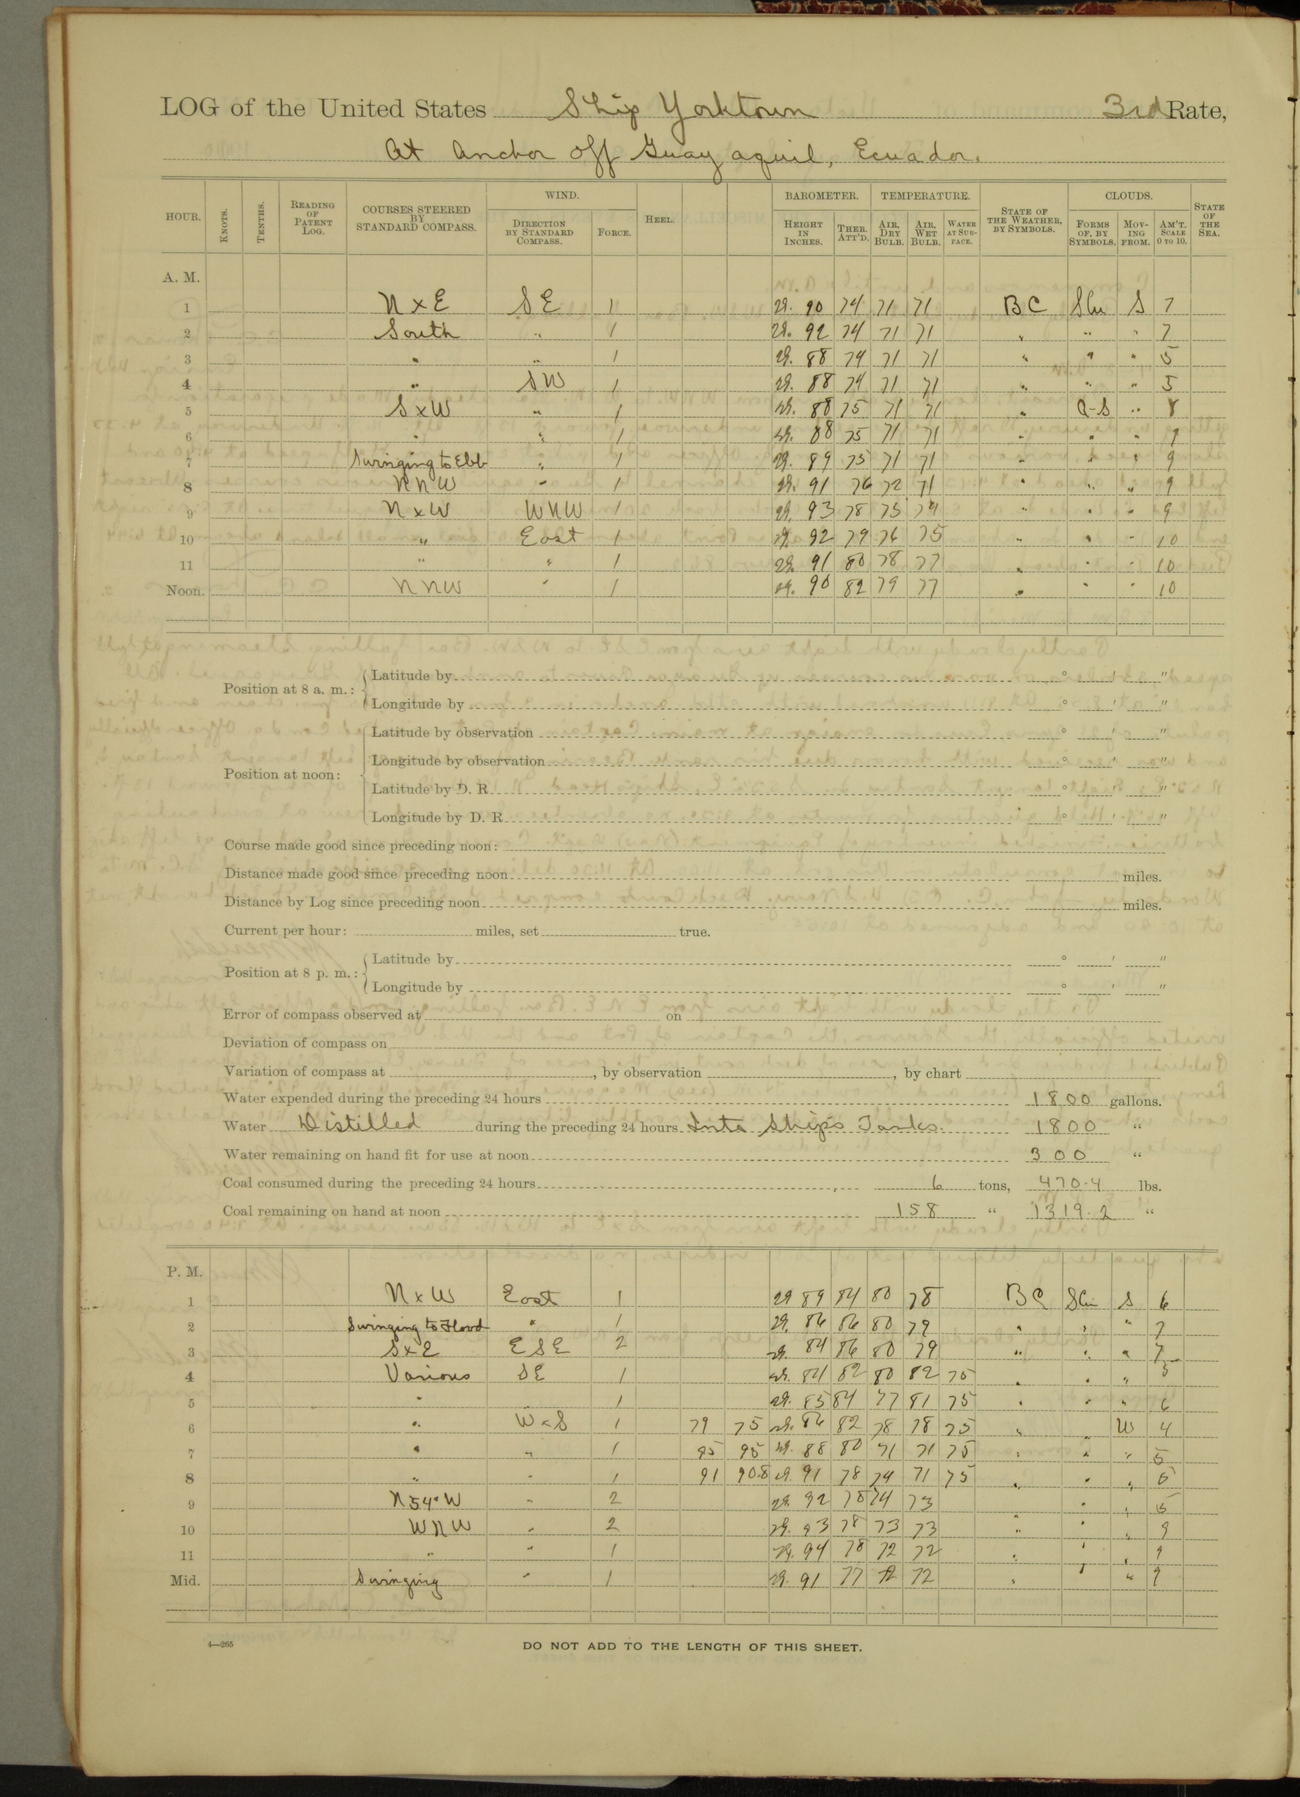 LOG of the United States Ship Yorktown 3rd Rate,
At Anchor off Guayaquil, Ecuador.
HOUR. KNOTS. TENTHS. READING OF PATENT LOG. COURSES STEERED BY STANDARD COMPASS. WIND. DIRECTION BY STANDARD COMPASS. FORCE. HEEL. BAROMETER. HEIGHT IN INCHES. THER. ATT'D. TEMPERATURE. AIR, DRY BULB. AIR, WET BULB. WATER AT SURFACE. STATE OF THE WEATHER, BY SYMBOLS. CLOUDS. FORMS OF, BY SYMBOLS. MOVING FROM. AM'T. SCALE 0 TO 10. STATE OF THE SEA.
A. M.
1 N x E SE 1 29. 90 74 71 71 BC S 7
2 South " 1 29. 92 74 71 71 " " " 7
3 " " 1 29. 88 74 71 71 " " " 5
4 " SW 1 29. 88 74 71 71 " " " 5
5 S x W " 1 29. 88 75 71 71 " C-S " 8
6 " " 1 29. 88 75 71 71 " " " 9
7 Swinging to Ebb " 1 29. 89 75 71 71 " " " 9
8 NNW " 1 29. 91 76 72 71 " " " 9
9 N x W WNW 1 29. 93 78 75 74 " " " 9
10 " East 1 29. 92 79 76 75 " " " 10
11 " " 1 29. 91 80 78 77 " " " 10
Noon. NNW " 1 29. 90 82 79 77 " " " 10
Position at 8 a. m.: Latitude by ° ' "
Longitude by ° ' "
Position at noon: Latitude by observation ° ' "
Longitude by observation ° ' "
Latitude by D. R. ° ' "
Longitude by D. R. ° ' "
Course made good since preceding noon:
Distance made good since preceding noon miles.
Distance by Log since preceding noon miles.
Current per hour: miles, set true.
Position at 8 p. m.: Latitude by ° ' "
Longitude by ° ' "
Error of compass observed at on
Deviation of compass on
Variation of compass at , by observation , by chart
Water expended during the preceding 24 hours 1800 gallons.
Water Distilled during the preceding 24 hours Into Ship's Tanks. 1800 "
Water remaining on hand fit for use at noon 300 "
Coal consumed during the preceding 24 hours 6 tons, 470.4 lbs.
Coal remaining on hand at noon 158 " 1319.2 "
P. M.
1 N x W East 1 29 89 84 80 78 BC S 6
2 Swinging to Flood " 1 29. 86 86 80 79 " " " 7
3 S x E ESE 2 29. 84 86 80 79 " " " 7
4 Various SE 1 29. 84 82 80 82 75 " " " 5
5 " 1 29. 85 84 77 81 75 " " " 6
6 " 1 79 75 29. 86 82 78 78 75 " " W 4
7 " " 1 95 95 29. 88 80 71 71 75 " " " 5
8 " " 1 91 90.8 29. 91 78 74 71 75 " " " 5
9 N54°W " 2 29. 92 78 74 73 " " 5
10 WNW " 2 29. 93 78 73 73 " " " 9
11 " " 1 29. 94 78 72 72 " " " 9
Mid. Swinging " 1 29. 91 77 72 72 " " " 9
4—265
DO NOT ADD TO THE LENGTH OF THIS SHEET.